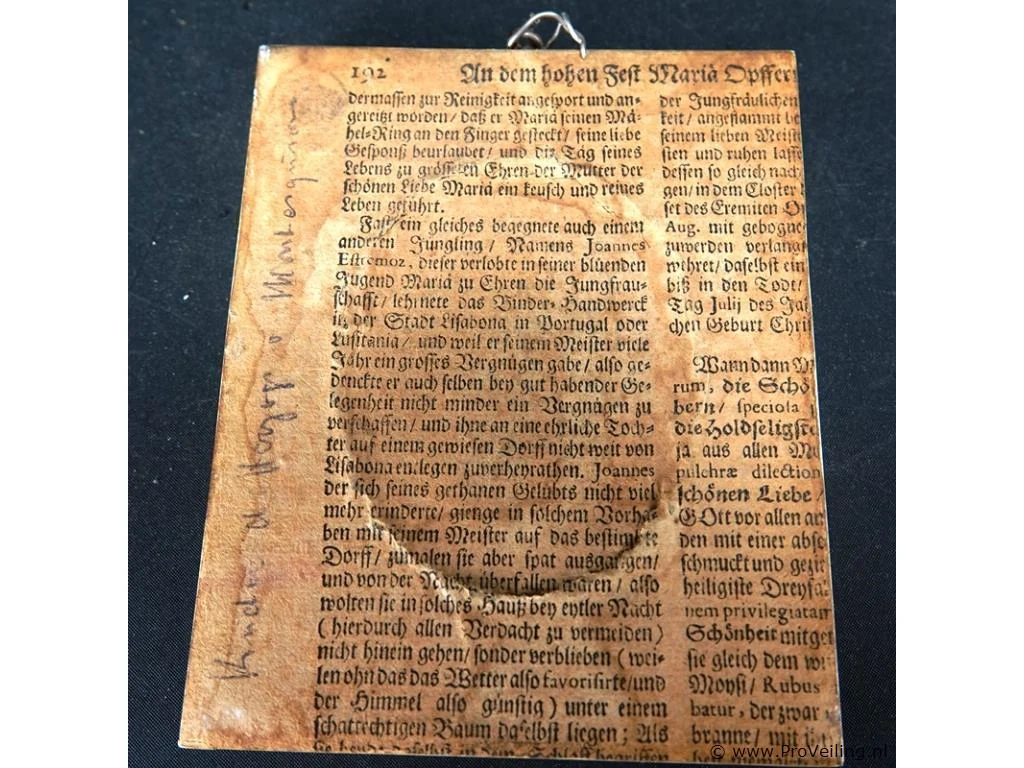 192 An dem hohen Fest Mariä Opffer
dermassen zur Reinigkeit angesport und an-
gereitzt worden / daß er Mariä seinen Mä-
hel-Ring an den Finger gesteckt / seine liebe
Gesponß beurlaubet / und die Täg seines
Lebens zu grösseren Ehren der Mutter der
schönen Liebe Mariä ein keusch und reines
Leben geführt.
Fast ein gleiches begegnete auch einem
anderen Jüngling / Namens Joannes
Estromoz, dieser verlobte in seiner blüenden
Jugend Mariä zu Ehren die Jungfrau-
schafft / lehrnete das Binder-Handwerck
in der Stadt Lisabona in Portugal oder
Lusitania / und weil er seinem Meister viele
Jahr ein grosses Vergnügen gabe / also ge-
denckte er auch selben bey gut habender Ge-
legenheit nicht minder ein Vergnügen zu
verschaffen / und ihne an eine ehrliche Toch-
ter auf einem gewiesen Dorff nicht weit von
Lisabona entlegen zuverheyrathen. Joannes
der sich seines gethanen Gelübts nicht viel
mehr erinderte / gienge in solchem Vorha-
ben mit seinem Meister auf das bestimte
Dorff / zumalen sie aber spat ausgangen /
und von der Nacht überfallen waren / also
wolten sie in solches Hauß bey eytler Nacht
(hierdurch allen Verdacht zu vermeiden)
nicht hinein gehen / sonder verblieben (wei-
len ohn das das Wetter also favorisirte / und
der Himmel also günstig) unter einem
schattechtigen Baum daselbst liegen; Als
der Jungfräulichen
keit / angeflammt
seinem lieben Meist
sten und ruhen lasse
dessen so gleich nach
gen / in dem Closter
set des Eremiten
Aug. mit gebogne
zuwerden verlang
wehret / daselbst ein
biß in den Todt /
Tag Julij des
chen Geburt Chri
Wann dann
rum, die Schö
bern / speciosa
die Holdseligste
ja aus allen
pulchræ dilection
schönen Liebe /
GOtt vor allen an
den mit einer abso
schmuckt und gezie
heiligiste Dreyfa
nem privilegiatam
Schönheit mitget
sie gleich dem
Moysi / Rubus
batur, der zwar
branne / mit
© www.ProVeiling.nl